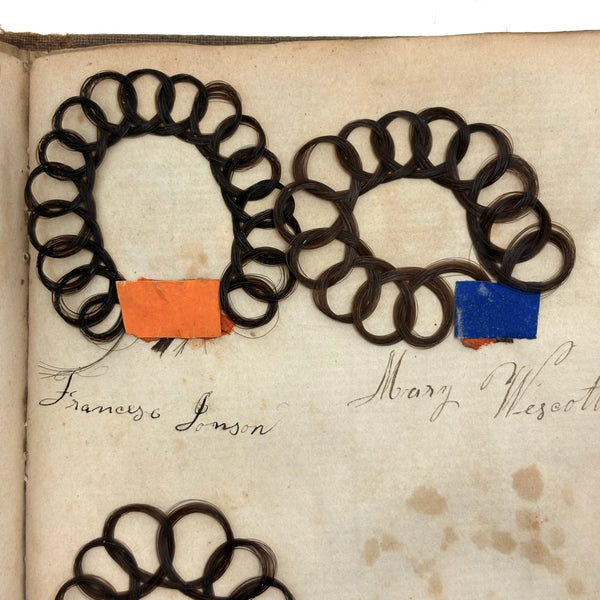 Francese Jonson
Mary Wescott